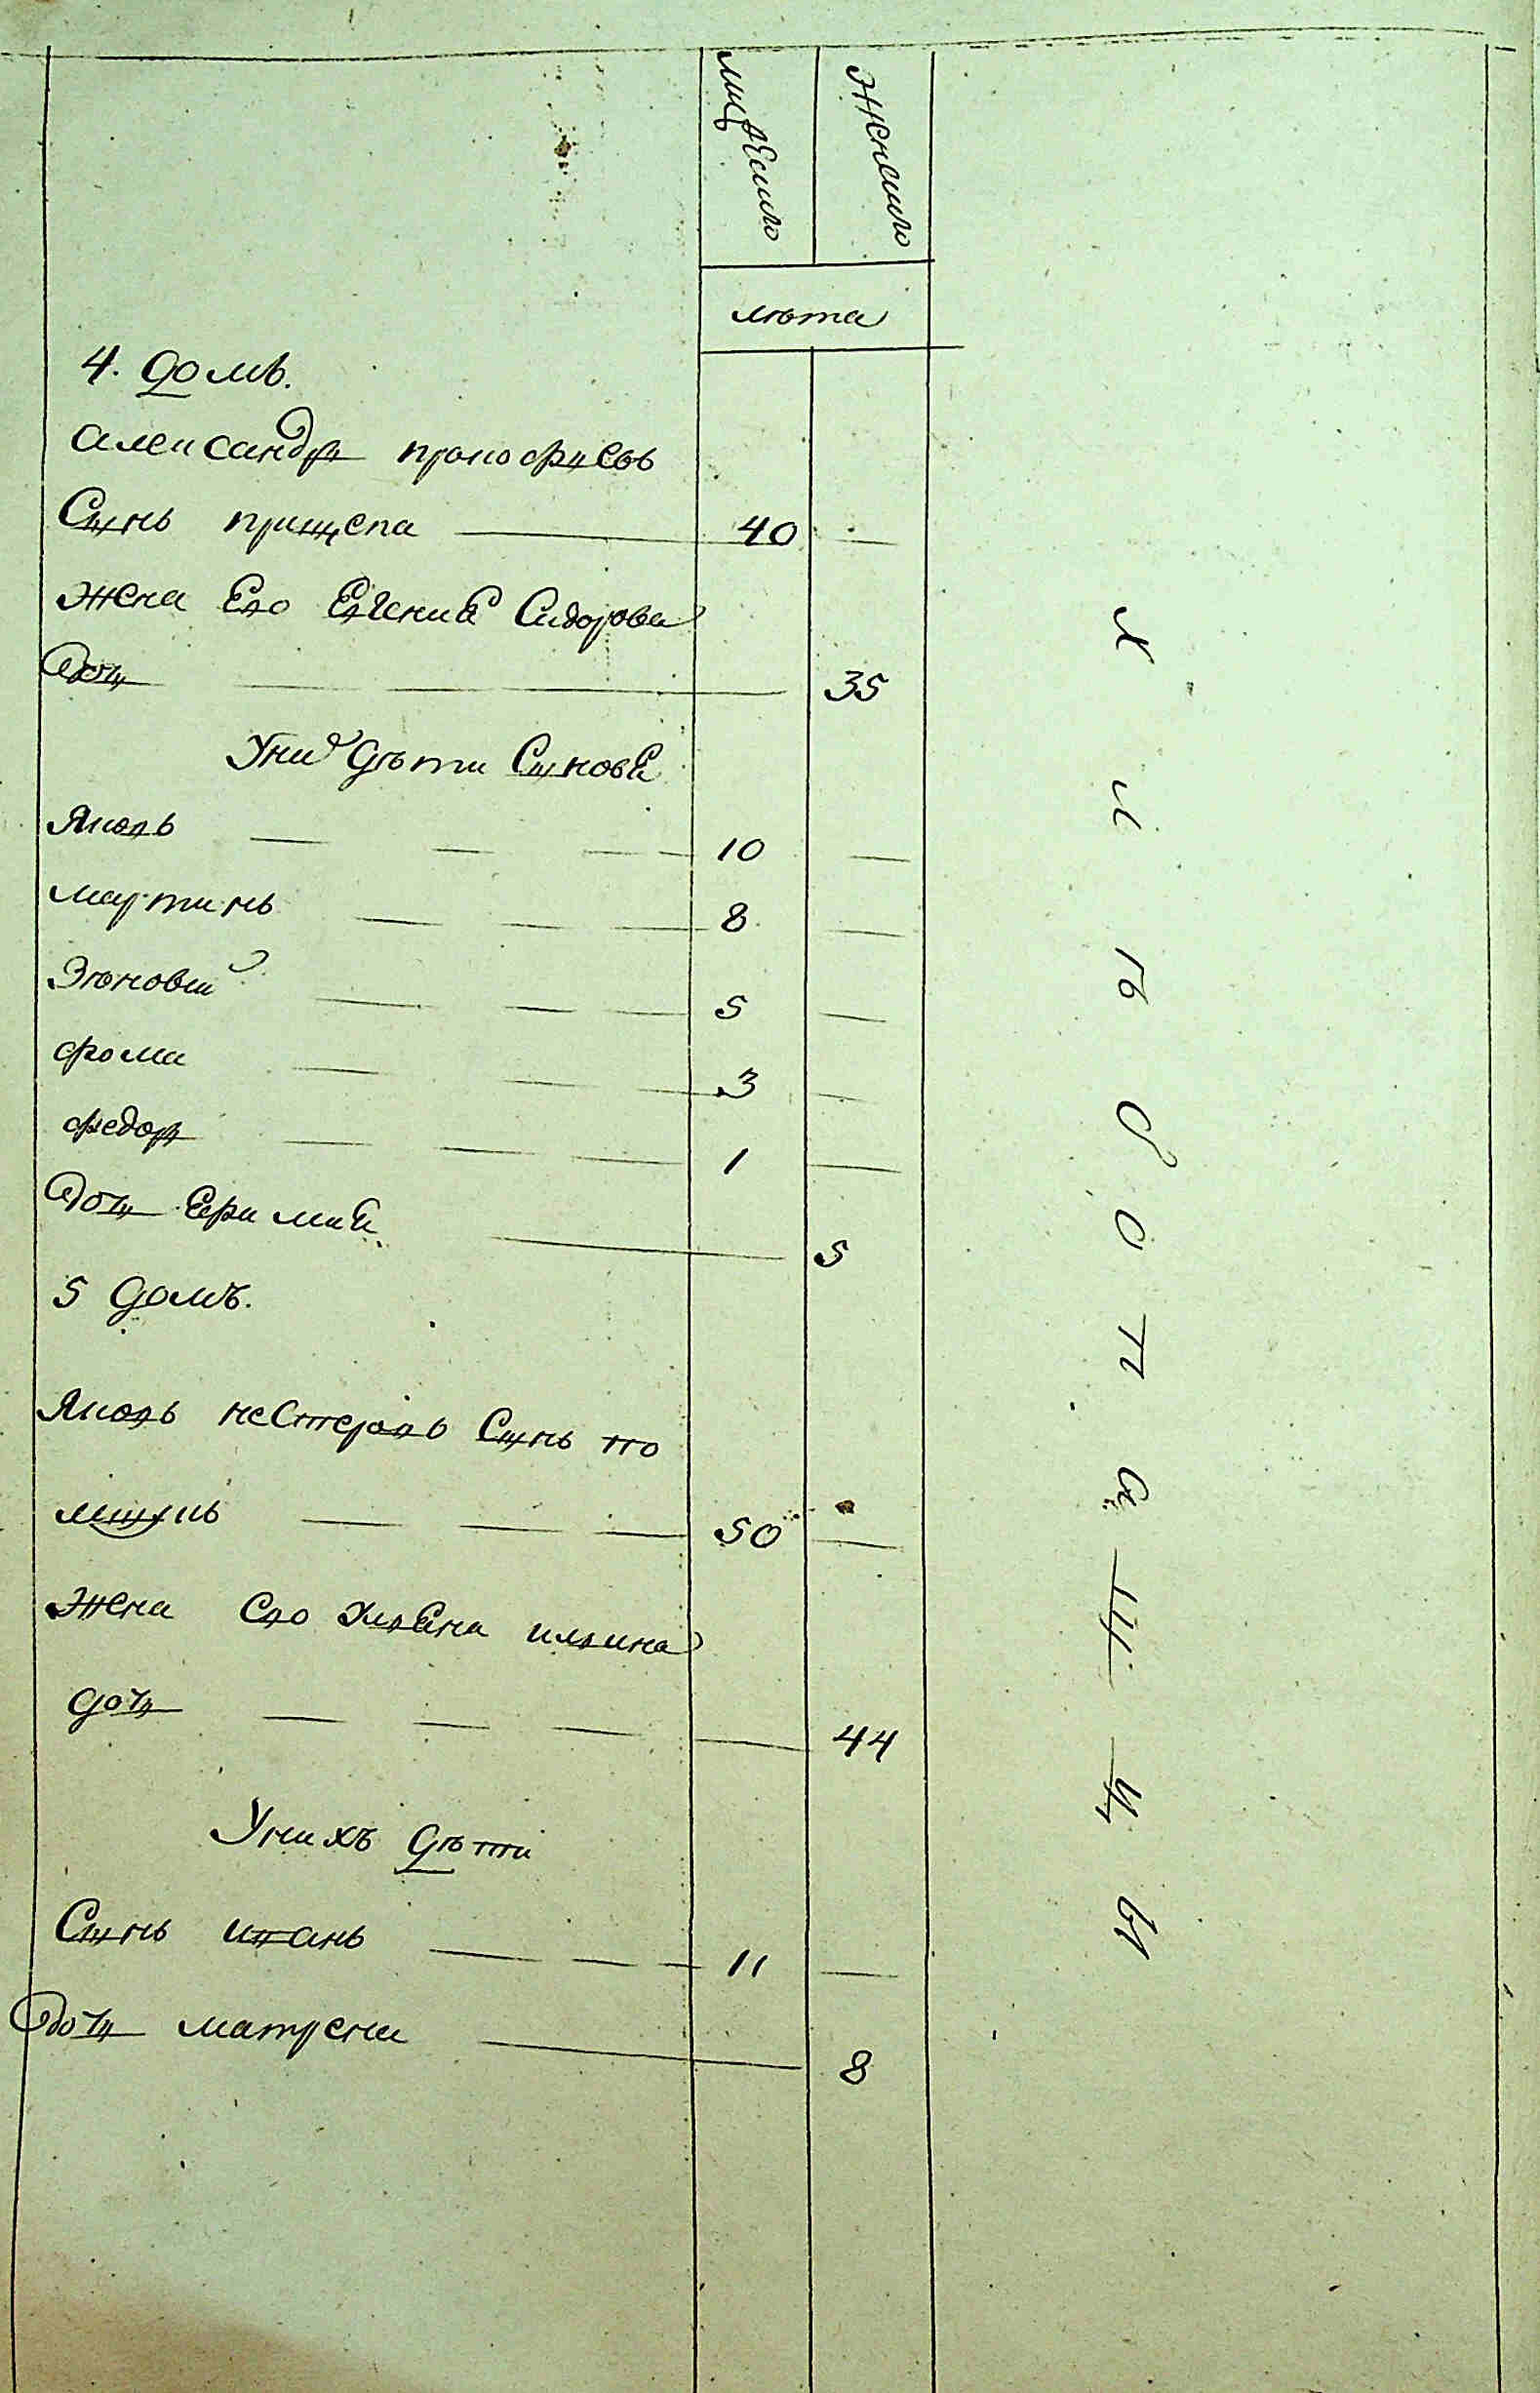 мужеского
женского
лѣта
4. домъ.
Александръ прокофьевъ
Сынъ прищепа 40
жена Его Евгениа Сидорова
дочь 35
У них дѣти Сыновья
Яковъ 10
мартинъ 8
Зѣновий 5
фома 3
федоръ 1
дочь Ефимиа 5
5 домъ.
Яковъ нестеровъ Сынъ по
50
жена Его Ульяна ильина
дочь 44
У нихъ дѣти
Сынъ иванъ 11
дочь матрена 8
хлѣбопашцы